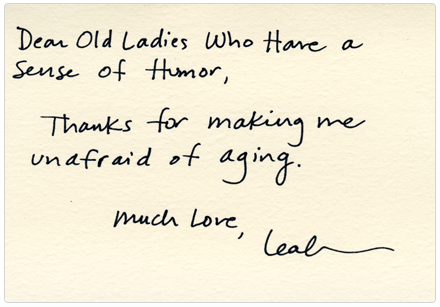 Dear Old Ladies Who Have a
Sense of Humor,
Thanks for making me
unafraid of aging.
Much Love,
Leah